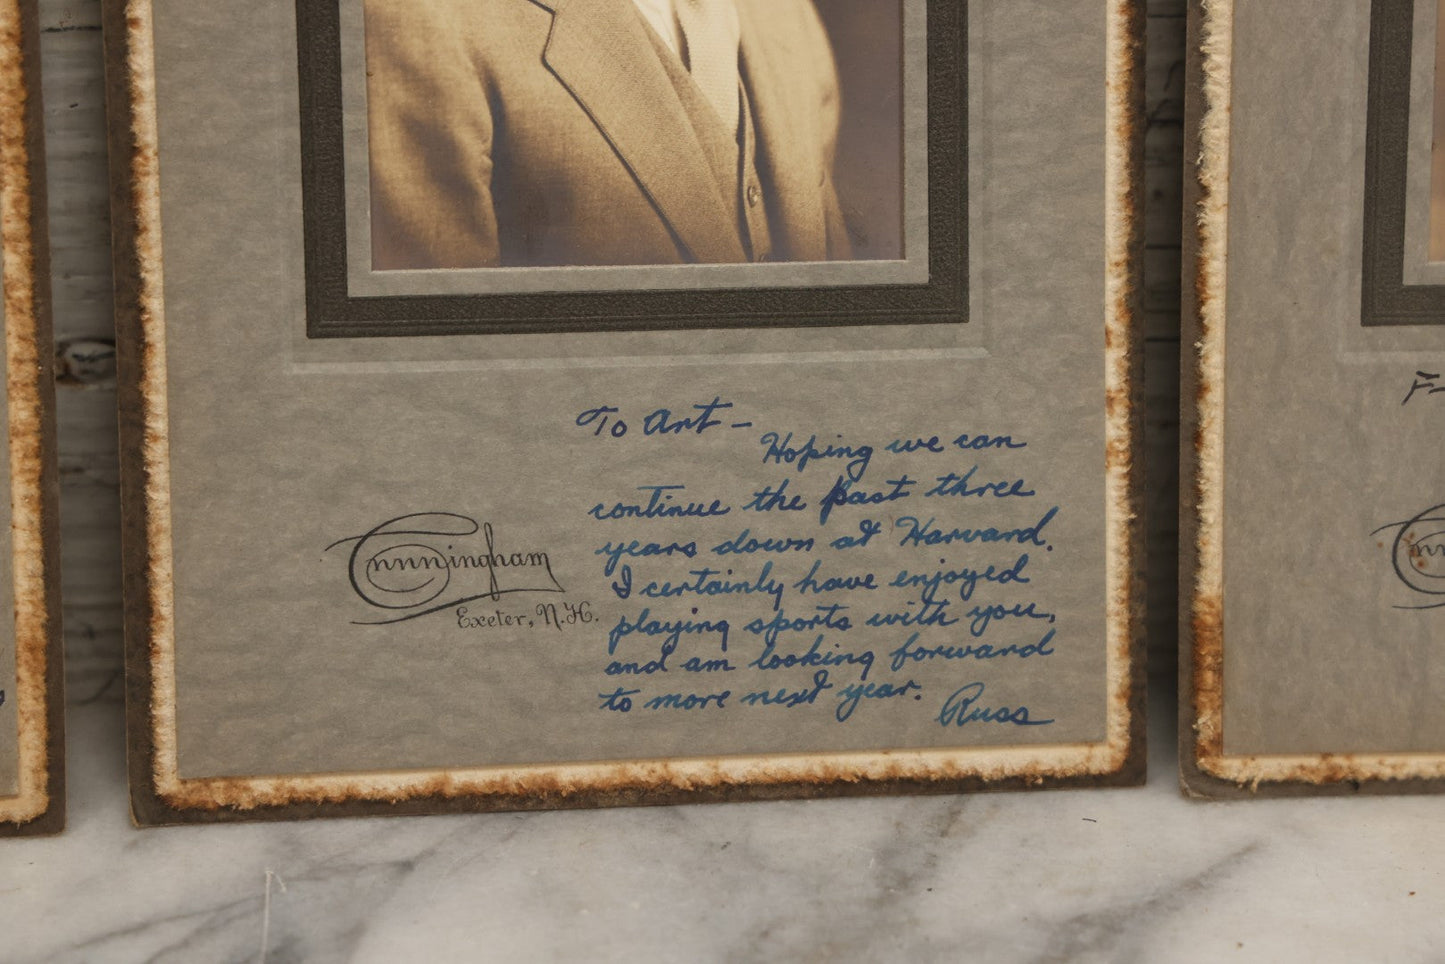 To Art —
Hoping we can
continue the past three
years down at Harvard.
I certainly have enjoyed
playing sports with you,
and am looking forward
to more next year.
Russ
Cunningham
Exeter, N.H.